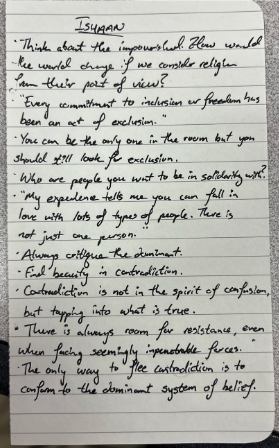 ISHMAN
• Think about the impoverished. How would
the world change if we consider religion
from their point of view?
• "Every commitment to inclusion or freedom has
been an act of exclusion."
• You can be the only one in the room but you
should still look for exclusion.
• Who are people you want to be in solidarity with?
• "My experience tells me you can fall in
love with lots of types of people. There is
not just one person."
• Always critique the dominant.
• Find beauty in contradiction.
• Contradiction is not in the spirit of confusion,
but tapping into what is true.
• "There is always room for resistance, even
when facing seemingly impenetrable forces."
• The only way to flee contradiction is to
conform to the dominant system of belief.